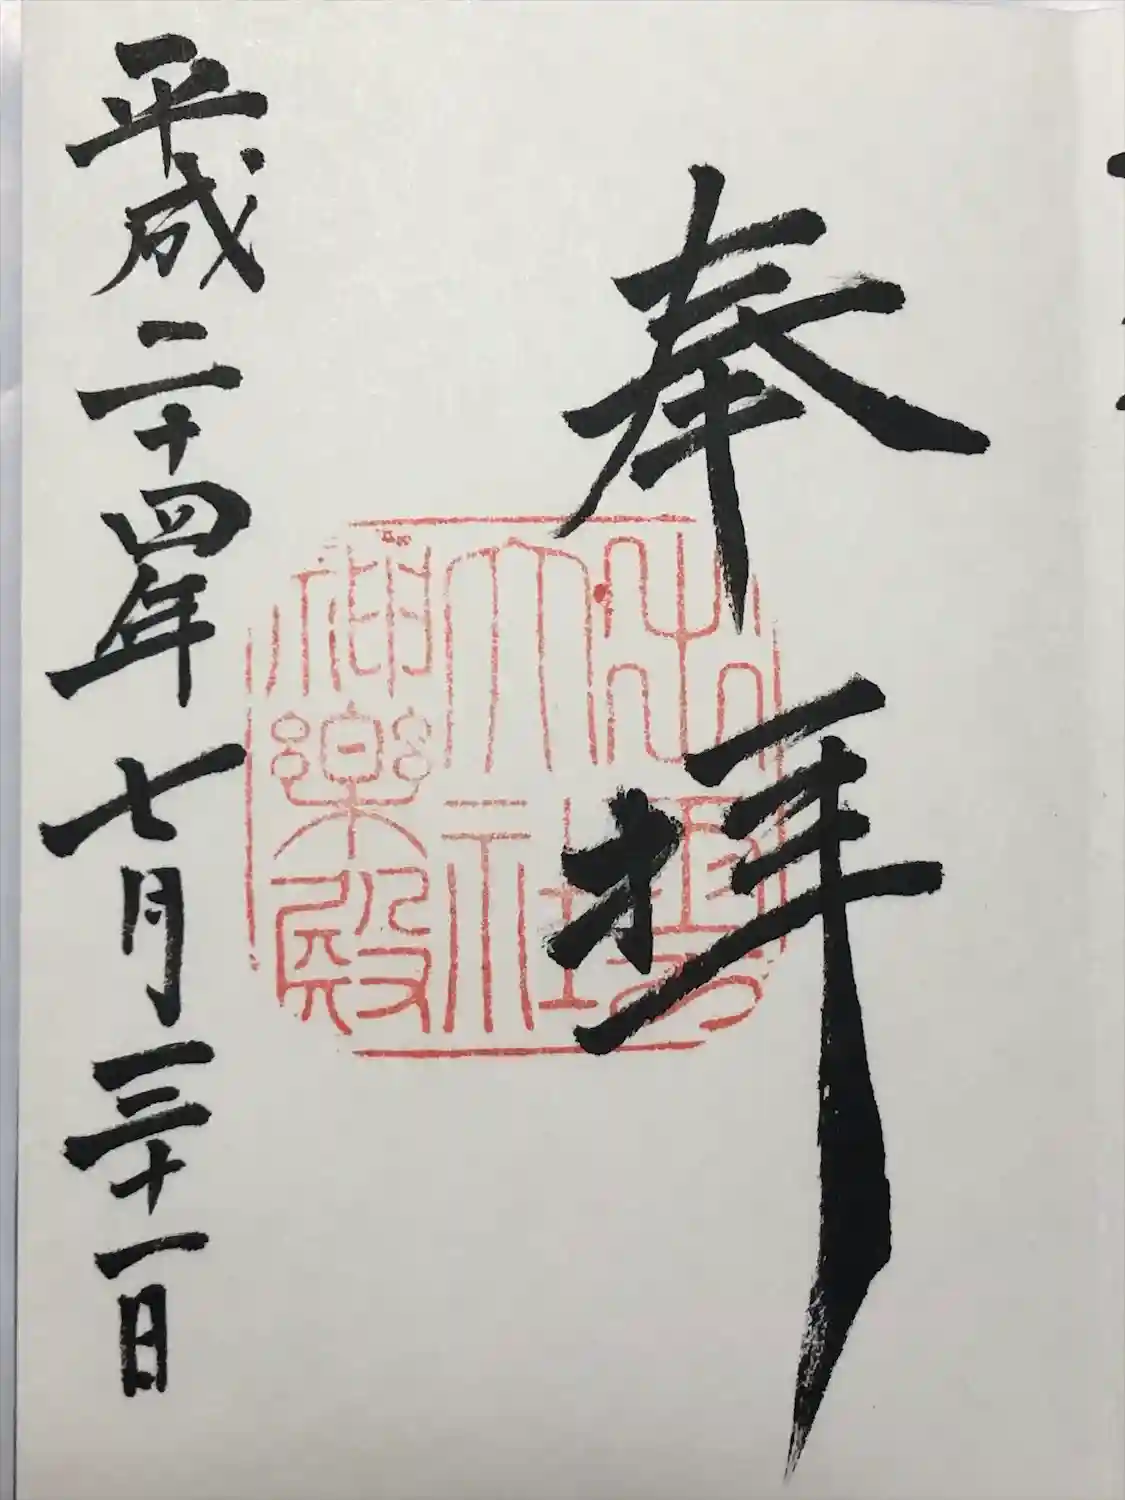 奉拝
出雲大社神楽殿
平成二十四年七月三十一日